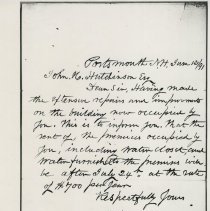 Portsmouth N.H. Jan 10/91
John H. Hutchinson Esq
Dear Sir, Having made
the extensive repairs and improvements
on the building now occupied by
you. This is to inform you that the
rent of the premises occupied by
you, including water closet and
water furnished the premises will
be after July 24th at the rate
of $700 per year
Respectfully Yours.